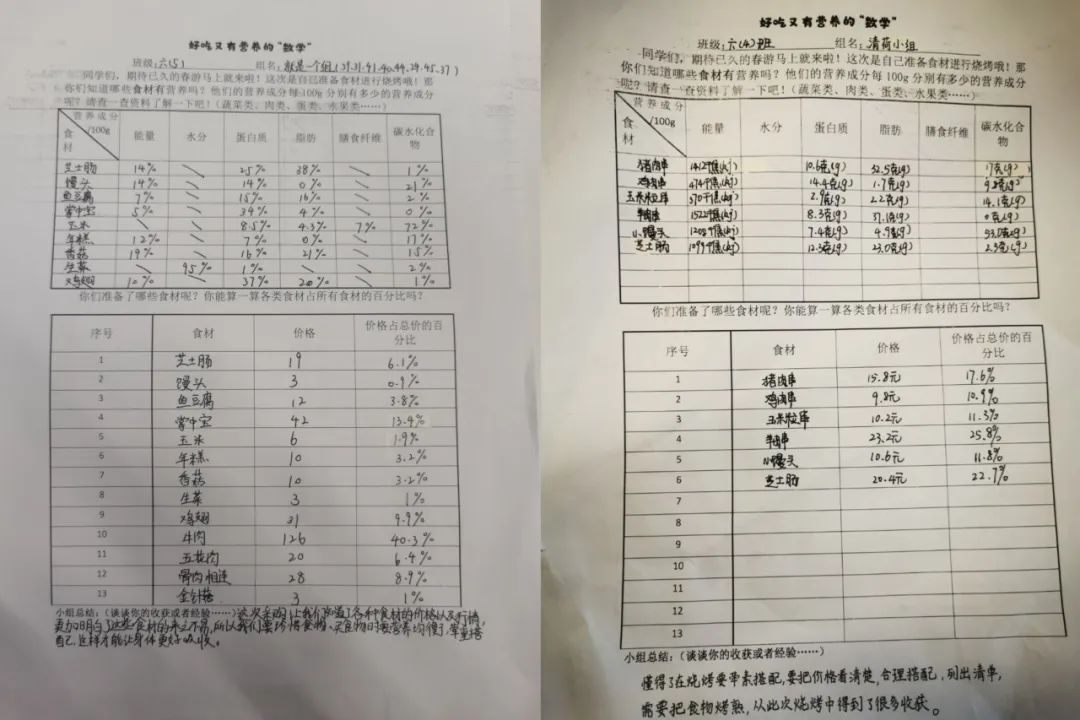 好吃又有营养的“数学”
班级:六(5) 组名:就是一个组(39.31.41.40.44.29.45.37)
同学们，期待已久的春游马上就来啦！这次是自己准备食材进行烧烤哦！那
你们知道哪些食材有营养吗？他们的营养成分每 100g 分别有多少的营养成分
呢？请查一查资料了解一下吧！（蔬菜类、肉类、蛋类、水果类……）
营养成分/100g 食材 能量 水分 蛋白质 脂肪 膳食纤维 碳水化合物
芝士肠 14% \ 25% 38% \ 1%
馒头 14% \ 14% 0% \ 21%
鱼豆腐 7% \ 15% 16% \ 2%
掌中宝 5% \ 34% 4% \ 0%
玉米 \ \ 8.5% 4.3% 7% 72%
年糕 12% \ 7% 0% \ 17%
香菇 19% \ 16% 21% \ 15%
生菜 \ 95% 1% \ \ 2%
鸡翅 10% \ 37% 20% \ 1%
你们准备了哪些食材呢？你能算一算各类食材占所有食材的百分比吗？
序号 食材 价格 价格占总价的百分比
1 芝士肠 19 6.1%
2 馒头 3 0.9%
3 鱼豆腐 12 3.8%
4 掌中宝 42 13.4%
5 玉米 6 1.9%
6 年糕 10 3.2%
7 香菇 10 3.2%
8 生菜 3 1%
9 鸡翅 31 9.9%
10 牛肉 126 40.3%
11 五花肉 20 6.4%
12 骨肉相连 28 8.9%
13 金针菇 3 1%
小组总结：（谈谈你的收获或者经验……）这次采购让我们知道了各种食材的价格以及行情，
更加明白了这些食材的来之不易，所以我们要珍惜食物，买食物时要营养均衡，荤素搭
自己，这样才能让身体更好吸收。
好吃又有营养的“数学”
班级:六(4)班 组名:清荷小组
同学们，期待已久的春游马上就来啦！这次是自己准备食材进行烧烤哦！那
你们知道哪些食材有营养吗？他们的营养成分每 100g 分别有多少的营养成分
呢？请查一查资料了解一下吧！（蔬菜类、肉类、蛋类、水果类……）
营养成分/100g 食材 能量 水分 蛋白质 脂肪 膳食纤维 碳水化合物
猪肉串 1412千焦(kJ) 10.6克(g) 32.5克(g) 17克(g)
鸡肉串 474千焦(kJ) 14.4克(g) 1.7克(g)
玉米粒串 570千焦(kJ) 2.9克(g) 2.2克(g) 14.1克(g)
牛肉串 1522千焦(kJ) 8.3克(g) 37.1克(g) 0克(g)
小馒头 7.4克(g) 4.9克(g) 53.0克(g)
芝士肠 1099千焦(kJ) 12.3克(g) 23.0克(g) 2.3克(g)
你们准备了哪些食材呢？你能算一算各类食材占所有食材的百分比吗？
序号 食材 价格 价格占总价的百分比
1 猪肉串 15.8元 17.6%
2 鸡肉串 9.8元 10.9%
3 玉米粒串 10.2元 11.3%
4 牛肉串 23.2元 25.8%
5 小馒头 10.6元 11.8%
6 芝士肠 20.4元 22.7%
7
8
9
10
11
12
13
小组总结：（谈谈你的收获或者经验……）
懂得了在烧烤要荤素搭配，要把价格看清楚，合理搭配，列出清单，
需要把食物烤熟，从此次烧烤中得到了很多收获。